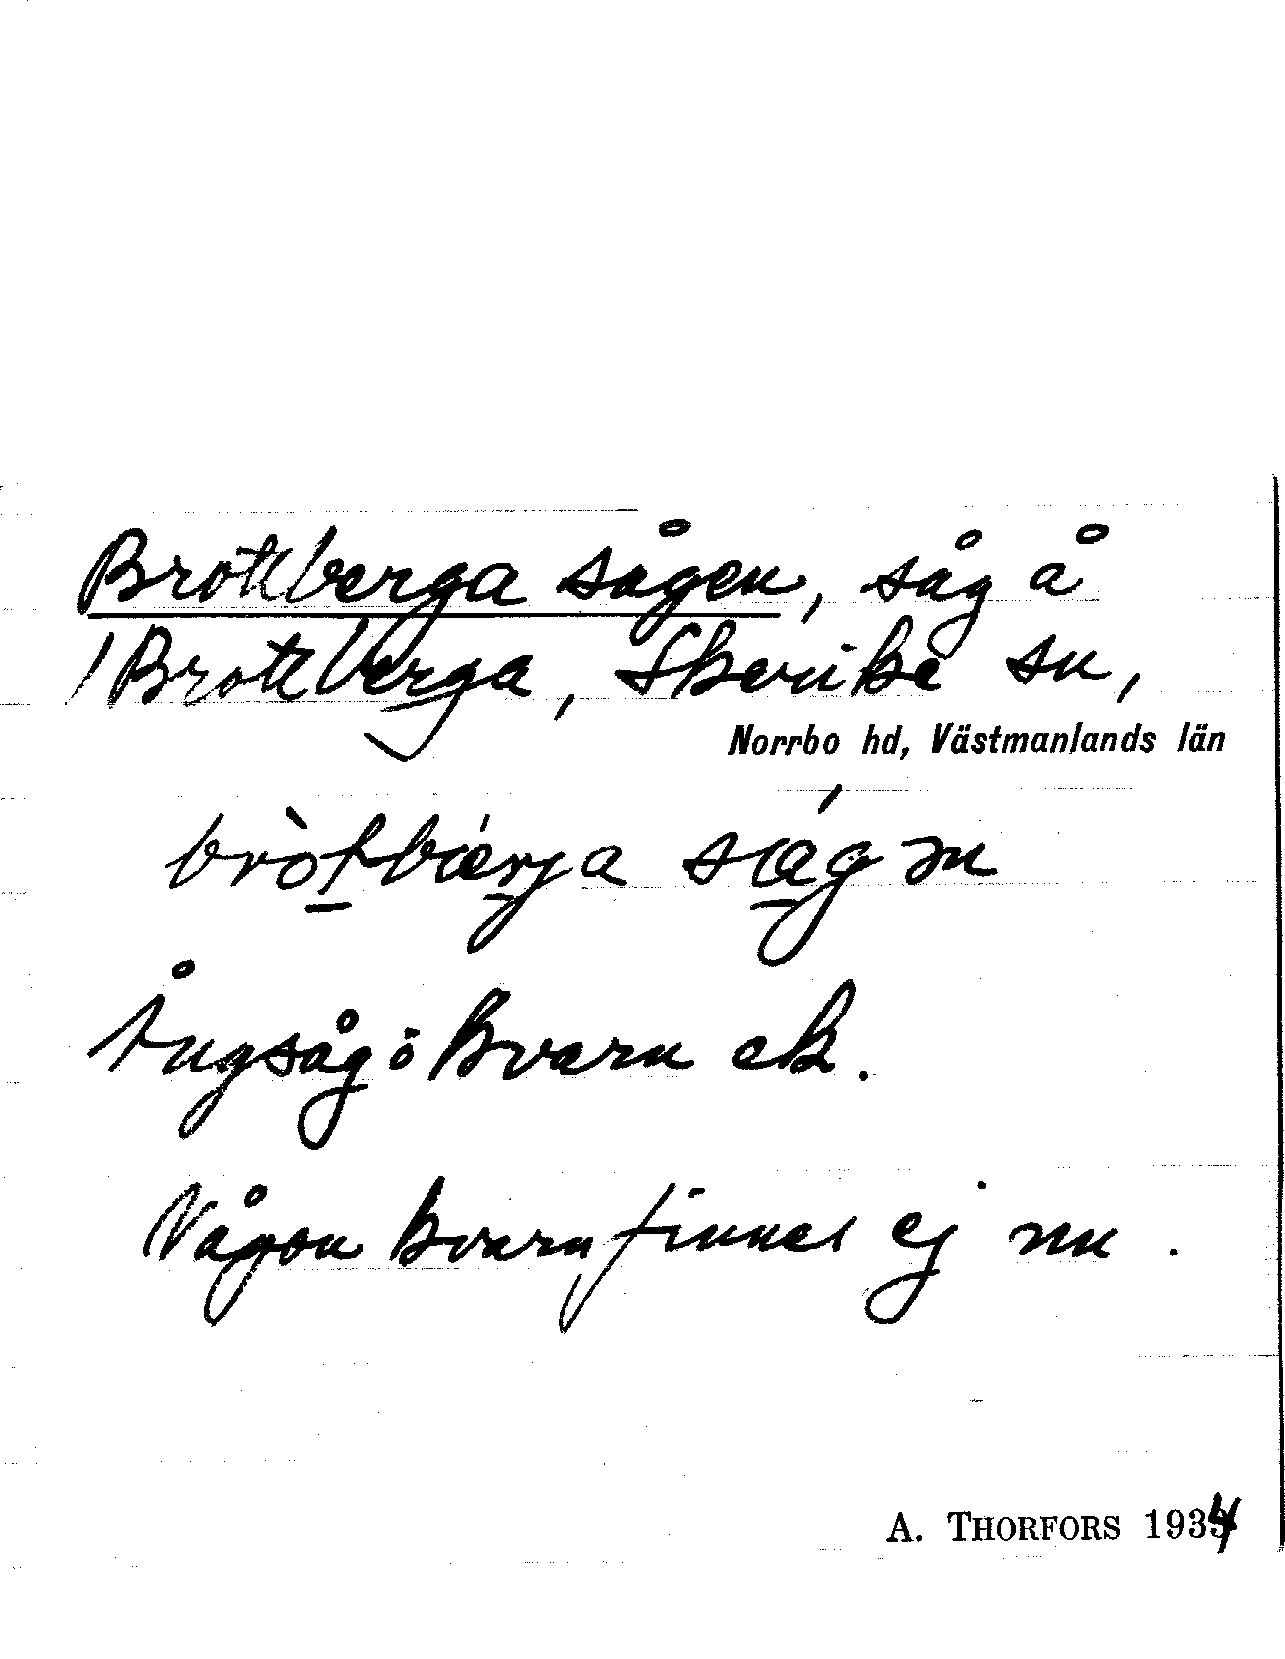 Brottberga sågen, såg å
/Brottberga, Skerike sn,
Norrbo hd, Västmanlands län
bròtbærja ságen
Ångsåg o kvarn ek.
Någon kvarn finnes ej nu.
A. THORFORS 1934